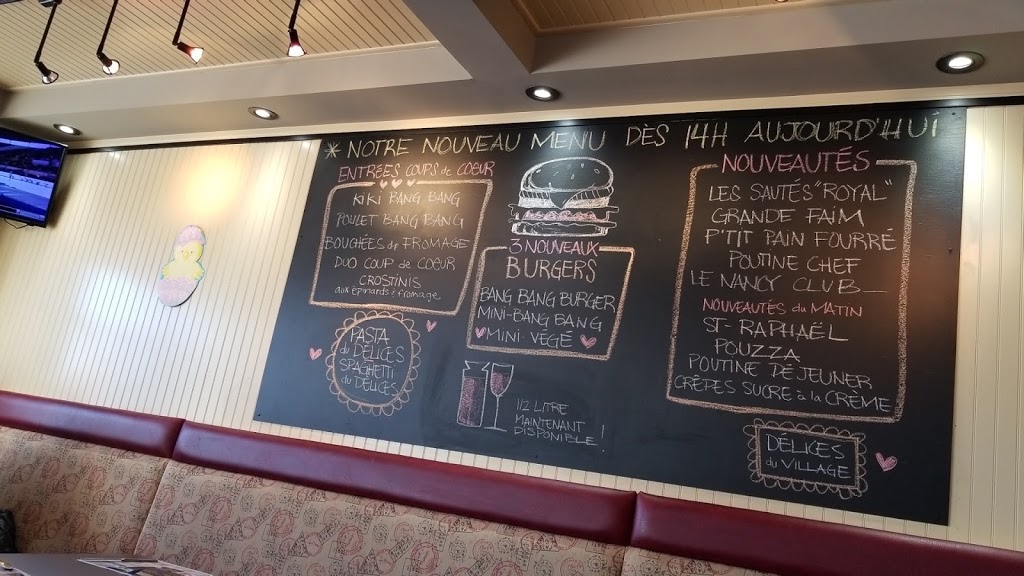 * NOTRE NOUVEAU MENU DÈS 14H AUJOURD'HUI
ENTRÉES COUPS de COEUR
KIKI BANG BANG
POULET BANG BANG
BOUCHÉES de FROMAGE
DUO COUP de COEUR
CROSTINIS
aux épinards & fromage
PASTA
du DÉLICES
SPAGHETTI
du DÉLICES
3 NOUVEAUX
BURGERS
BANG BANG BURGER
MINI-BANG BANG
MINI VÉGÉ
1/2 LITRE
MAINTENANT
DISPONIBLE!
NOUVEAUTÉS
LES SAUTÉS "ROYAL"
GRANDE FAIM
P'TIT PAIN FOURRÉ
POUTINE CHEF
LE NANCY CLUB
NOUVEAUTÉS du MATIN
ST-RAPHAËL
POUZZA
POUTINE DÉJEUNER
CRÊPES SUCRE à la CRÈME
DÉLICES
du VILLAGE